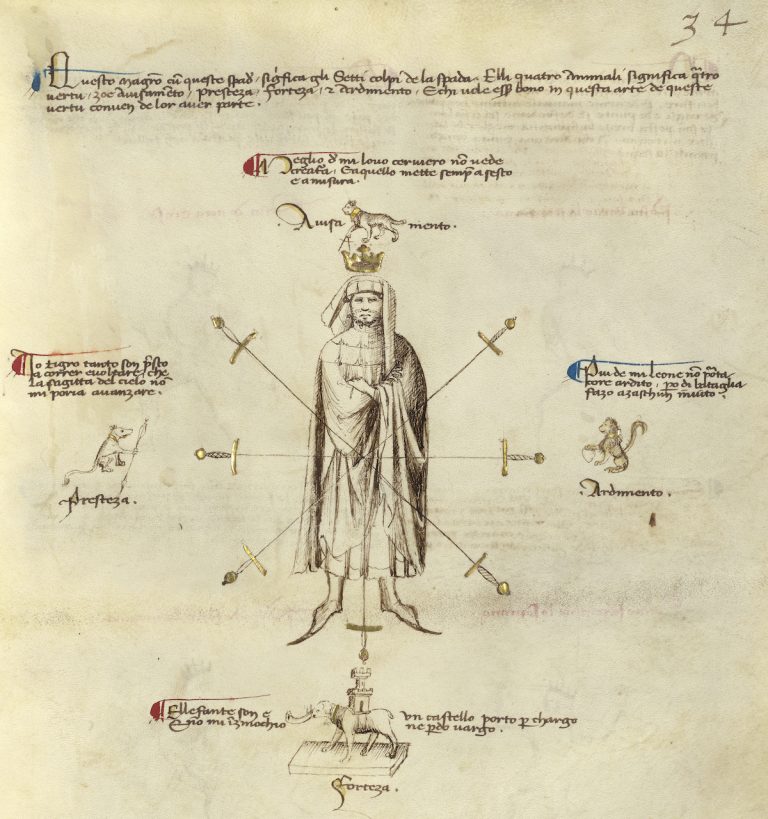 34
Questo magro cū queste spad' significa gli Setti colpi de la spada. Elli quatro Animali significa qtro
vertu, zoe Avisamēto, presteza, Forteza, & Ardimento, Echi vole esser bono in questa arte de queste
vertu conven de lor aver parte.
Meglio d' mi lovo cerviero nō vede
creatura, Eaquello mette semp a sesto
e a misura.
Avisamento.
Io tigro tanto son psto
a correr e voltare, che
la sagitta del cielo nō
mi poria avanzare.
Presteza.
Piu de mi leone nō porta
core ardito, po di bataglia
fazo azaschun invito.
Ardimento.
Ellefante son e un castello porto p chargo
E nō mi inzinochio ne pdo vargo.
Forteza.